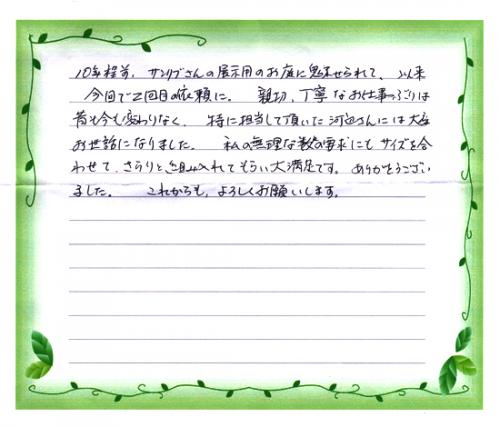 10年程前、サンリブさんの展示用のお庭に魅せられて、以来
今回で2回目の依頼に。 親切、丁寧なお仕事っぷりは
昔も今も変わりなく、特に担当して頂いた河辺さんには大変
お世話になりました。 私の無理な数々の要求にもサイズを合
わせて、さらりと組み入れてもらい大満足です。ありがとうござい
ました。 これからも、よろしくお願いします。